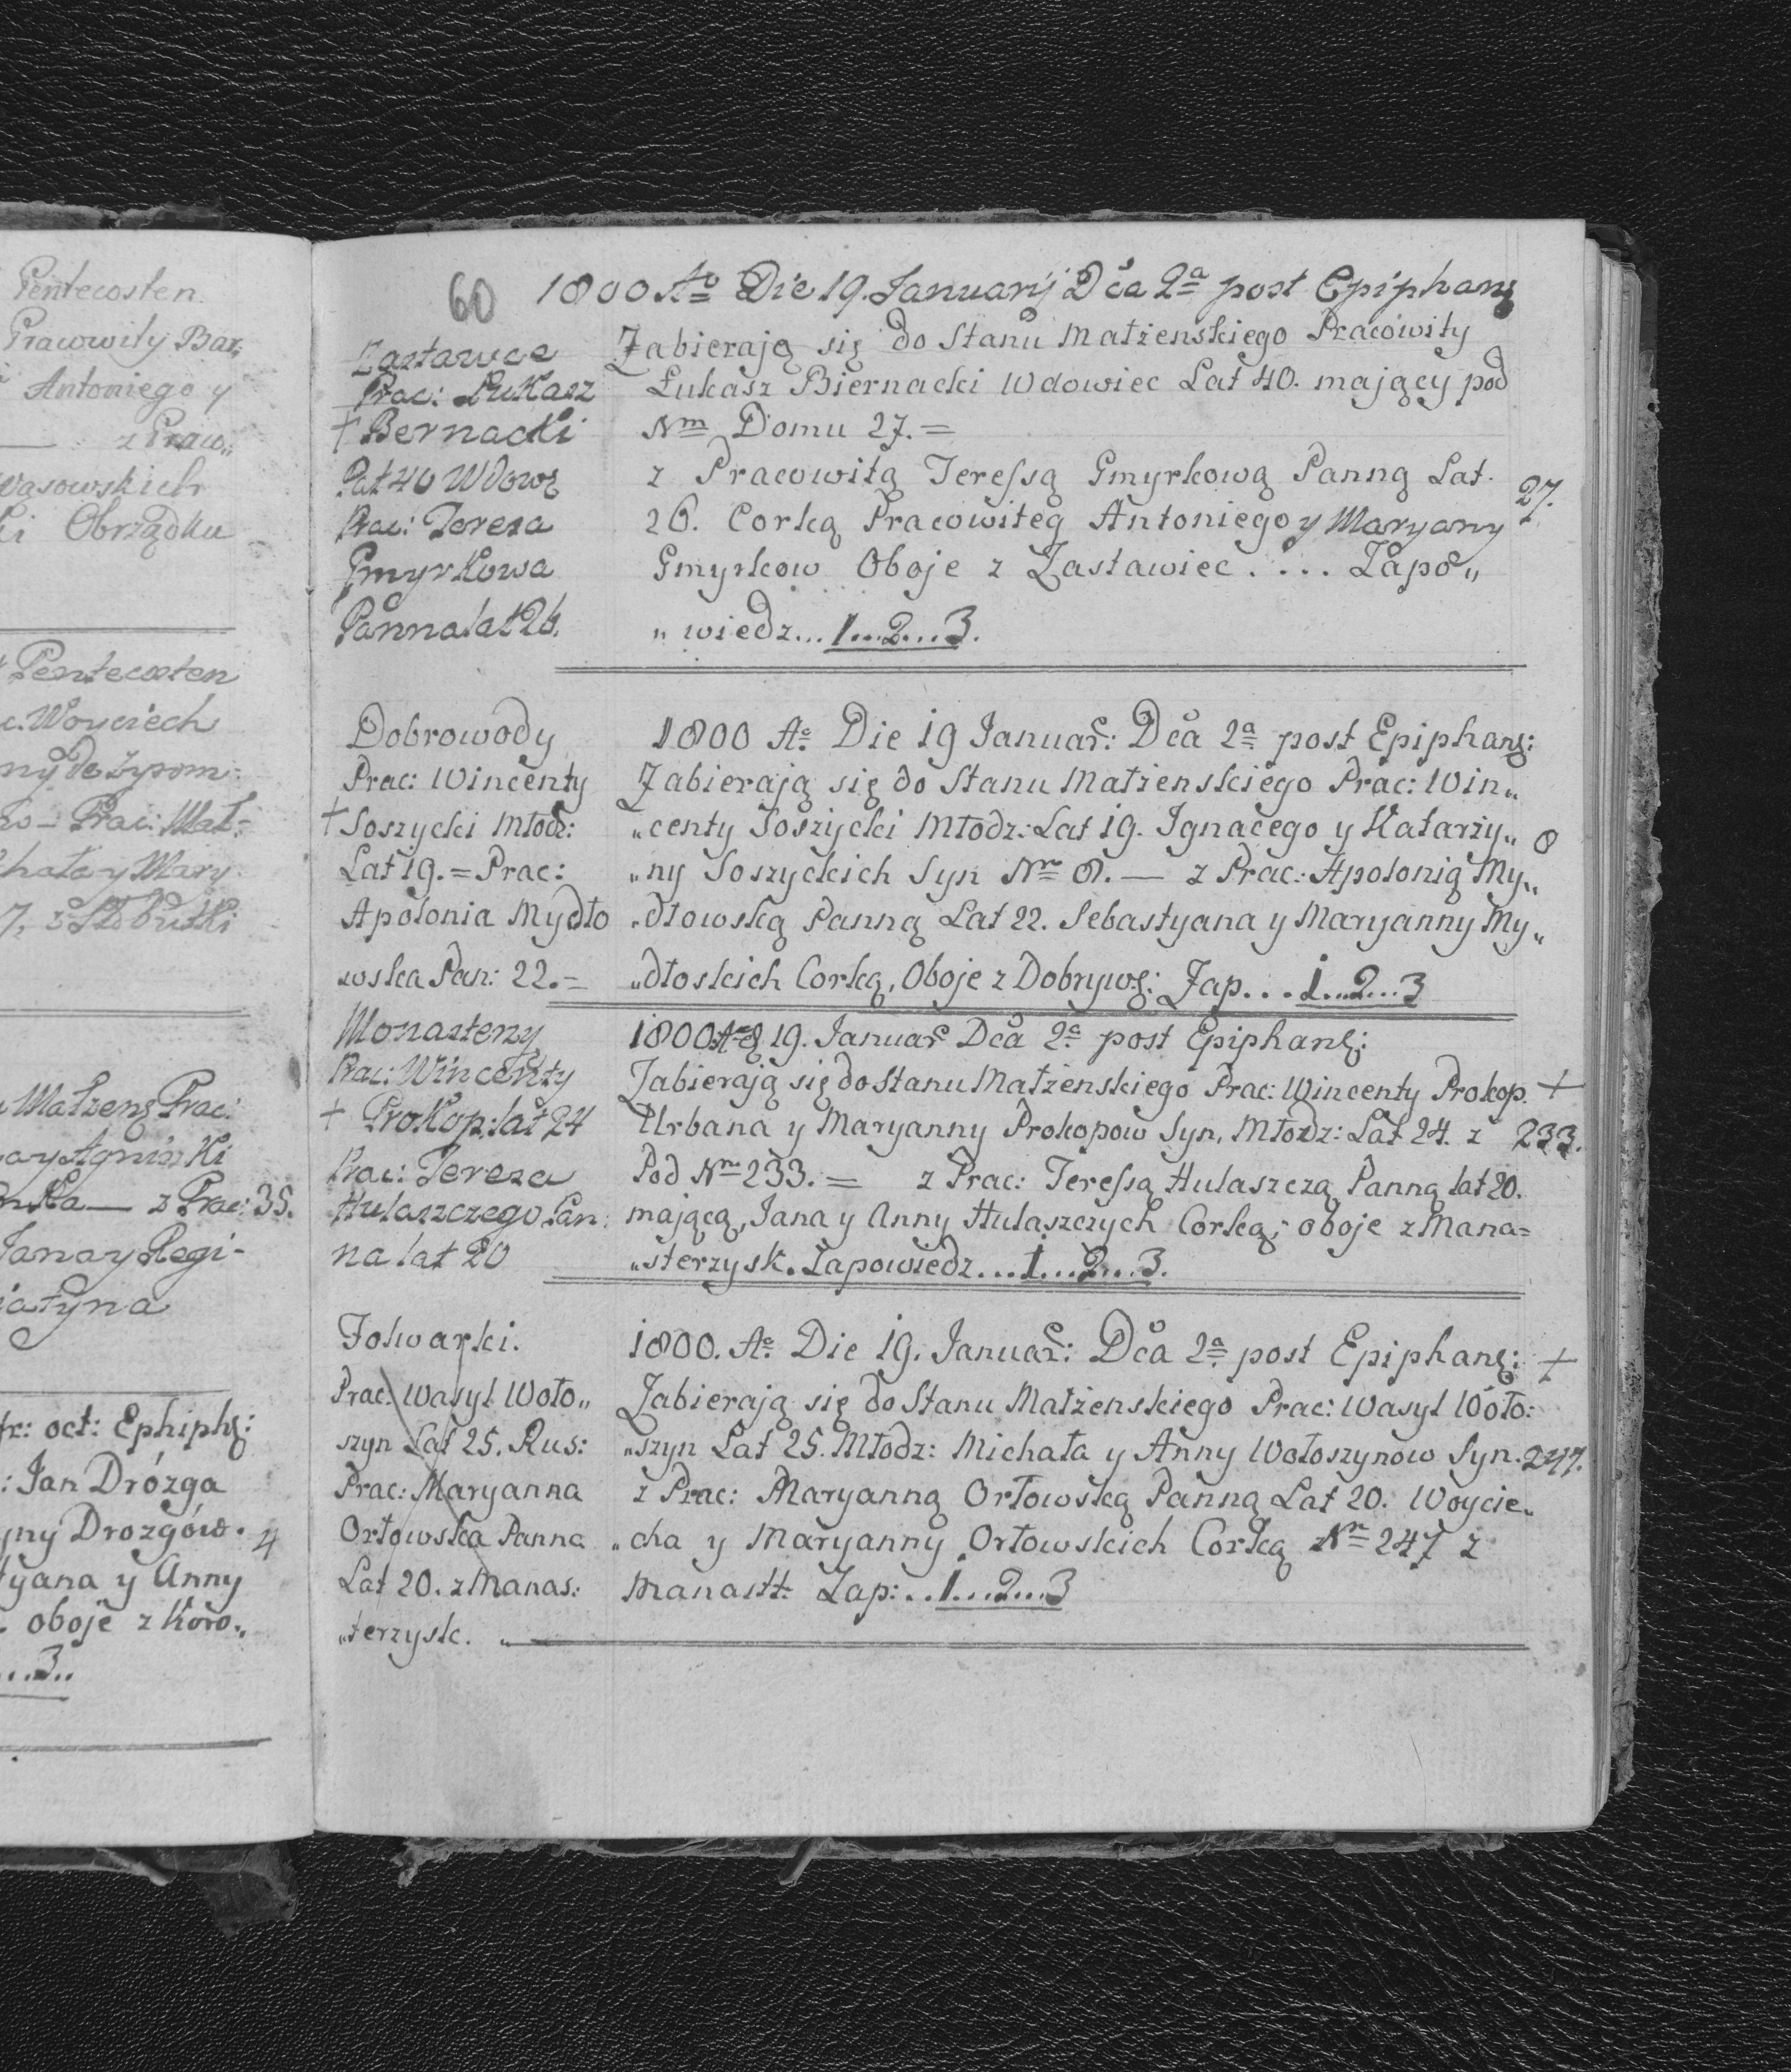 Pentecosten
Pracowity Bar,
Antoniego y
z Praw,,
wąsowskich
Obrządku
Pentecosten
Woyciech
Prac: Mał:
chała y Mary
Małżenę Prac:
nka — z Prac: 35.
Jana y Regi-
oct: Ephiphę:
: Jan Drózga
yny Drozgów. 4
tyana y Anny
. oboje z Koro.,
...3..
60 1800 Aᵒ Die 19. Januarij Dca 2ᵃ post Epiphanę
Zastawce
Prac: Łukasz
+ Bernacki
Lat 40 Wdowę
Prac: Teresa
Gmyrkowa
Panna lat 26.
Zabierają się do Stanu Małżenskiego Pracowity
Łukasz Biernacki Wdowiec Lat 40. mający pod
Nᵐ Domu 27. =
z Pracowitą Teressą Gmyrkową Panną Lat.
26. Corką Pracowiteg Antoniego y Maryany 27.
Gmyrkow Oboje z Zastawiec .... Zapo„
„wiedz... 1...2...3.
Dobrowody
Prac: Wincenty
+ Soszycki Młodz:
Lat 19. = Prac:
Apolonia Mydło
wska Pan: 22. =
1800 Aᵒ Die 19 Januar: Dca 2ᵃ post Epiphanę:
Zabierają się do Stanu Małżenskiego Prac: Win„
„centy Soszycki Młodz: Lat 19. Ignacego y Katarzy„ 8
„ny Soszyckich Syn Nʳᵒ 8. — z Prac: Apolonią My„
„dłowską Panną Lat 22. Sebastyana y Maryanny My„
„dłoskich Corką, Oboje z Dobrywę: Zap... 1...2...3
Monastery
Prac: Wincenty
+ Prokop: lat 24
Prac: Teresa
Hulaszczego Pan:
na lat 20
1800 Aᵒ 19. Januar Dca 2ᵃ post Epiphanę:
Zabierają się do Stanu Małżenskiego Prac: Wincenty Prokop. +
Urbana y Maryanny Prokopow Syn, Młodz: Lat 24. z 233.
Pod Nʳᵒ 233. = z Prac: Teressą Hulaszczą Panną lat 20.
mającą, Jana y Anny Hulaszczych Corką; oboje z Mana=
„sterzysk. Zapowiedz... 1...2...3.
Folwarki.
Prac: Wasyl Woło„
szyn Lat 25. Rus:
Prac: Maryanna
Orłowska Panna
Lat 20. z Manas:
„terzysk. „
1800. Aᵒ Die 19. Januar: Dca 2ᵃ post Epiphanę: +
Zabierają się do Stanu Małżenskiego Prac: Wasyl Woło:
„szyn Lat 25. Młodz: Michała y Anny Wołoszynow Syn. 247.
z Prac: Maryanną Orłowską Panną Lat 20. Woycie„
„cha y Maryanny Orłowskich Corką Nʳᵒ 247 z
Manastt: Zap: .. 1...2...3